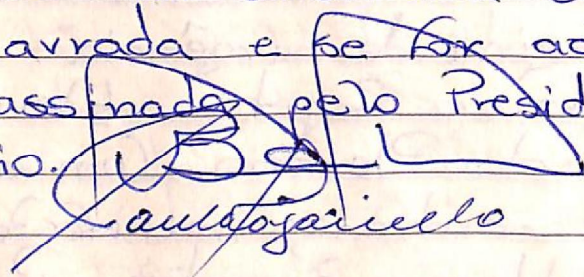 avrada e se for ac
assinada pelo Presid
io.